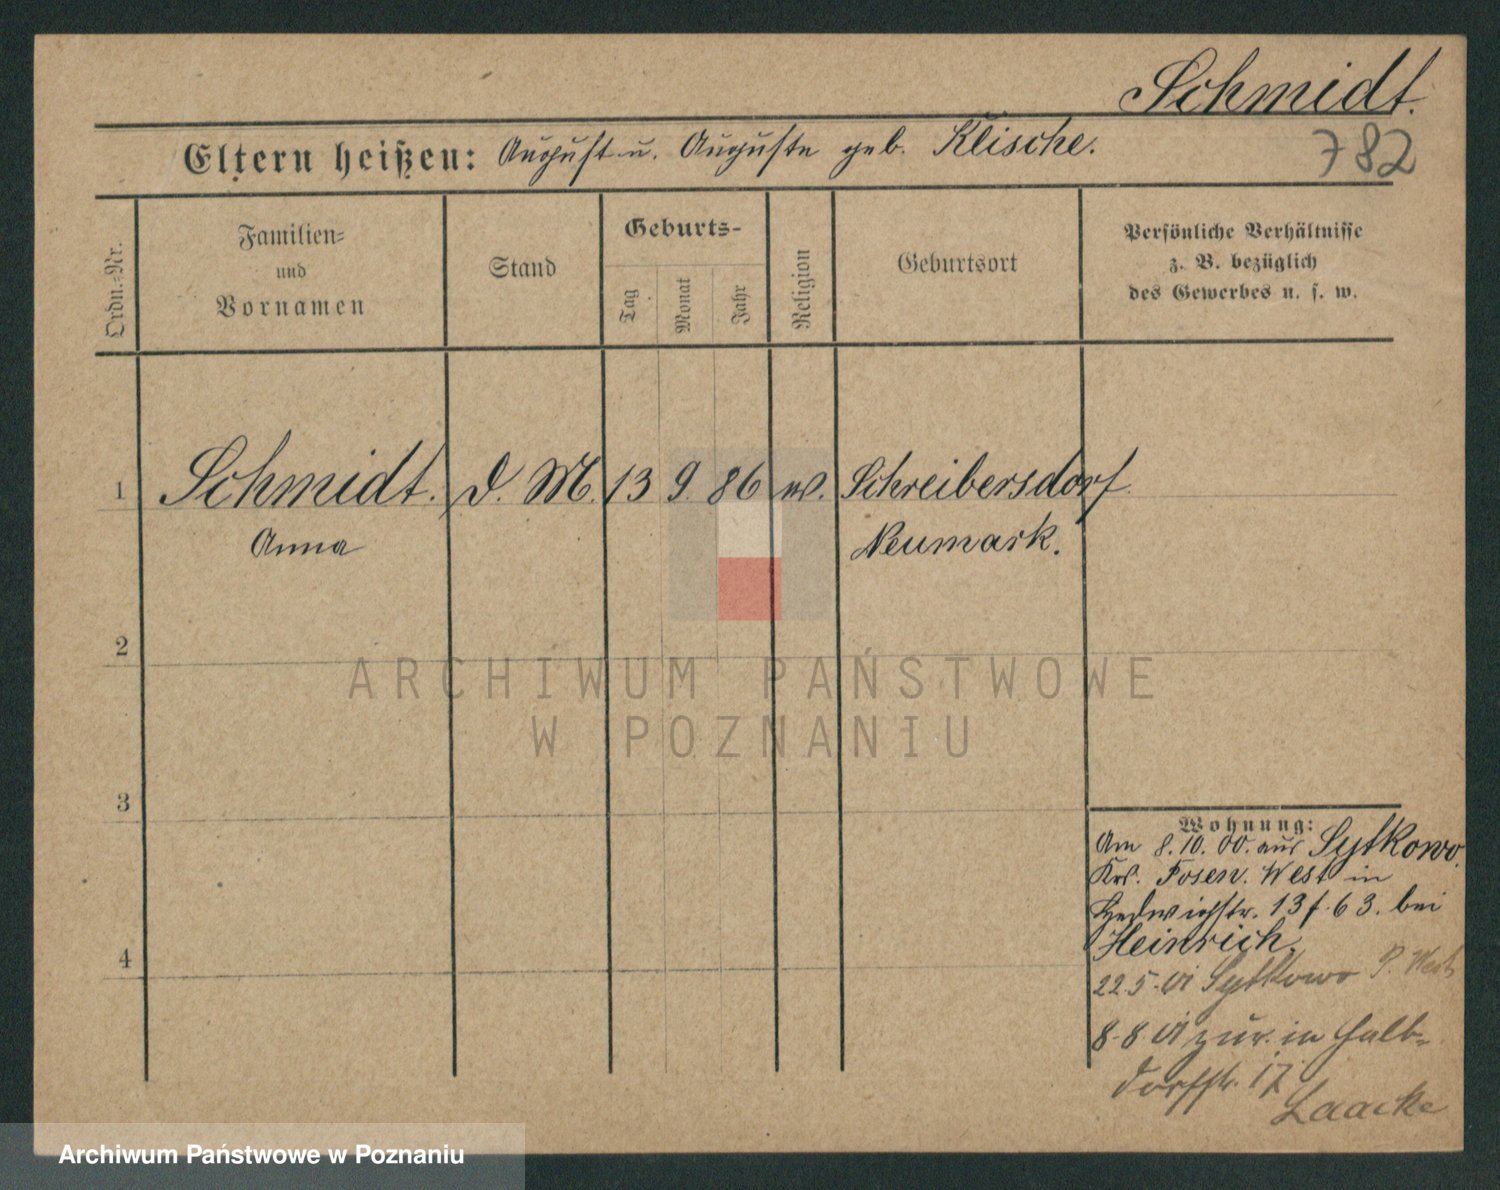 Schmidt.
782
Eltern heißen: August u. Auguste geb. Klische.
Ordn.-Nr.
Familien-
und
Vornamen
Stand
Geburts-
Tag
Monat
Jahr
Religion
Geburtsort
Persönliche Verhältnisse
z. B. bezüglich
des Gewerbes u. s. w.
1 Schmidt. d. M. 13 9. 86 ev. Schreibersdorf
Anna Neumark.
2
3
4
ARCHIWUM PAŃSTWOWE
W POZNANIU
Wohnung:
Am 8.10.00. aus Sytkowo.
Krs. Posen. West in
Hedwigstr. 13 f. 63. bei
Heinrich.
22.5.01 Sytkowo P. West
8-8 01 zur. in Halb-
dorfstr. 17
Laacke
Archiwum Państwowe w Poznaniu